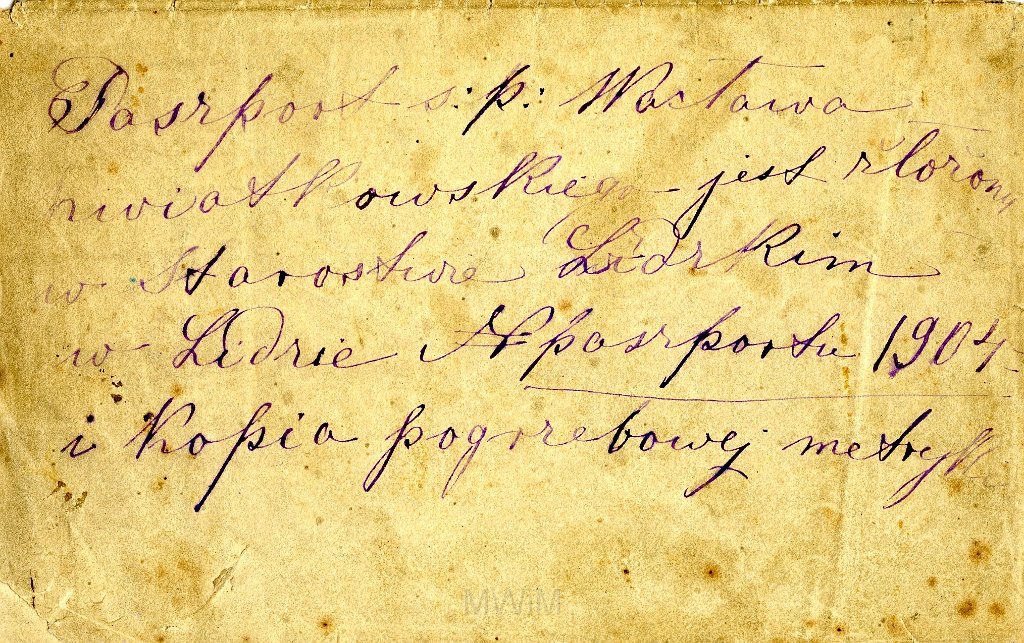 Paszport ś: p: Wacława
Kwiatkowskiego jest złożony
w Starostwie Lidzkim
w Lidzie N paszportu 1904
i Kopia pogrzebowej metryki
MWiM